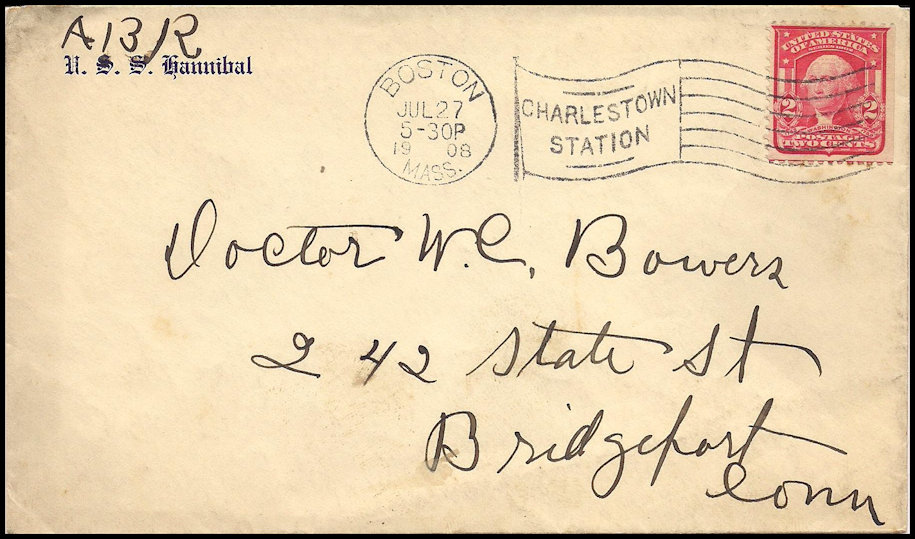 A B R
U. S. S. Hannibal
BOSTON
JUL 27
5-30P
19 08
MASS.
CHARLESTOWN
STATION
UNITED STATES
OF AMERICA
2 2
WASHINGTON
POSTAGE
TWO CENTS
Doctor W. C. Bowers
242 State St
Bridgeport
Conn